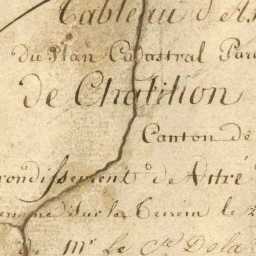 Tableau d'As
du Plan Cadastral Par
de Chatillon
Canton de
rondissement de Vitré
sur le Terrein le 2
de Mr Le Cte Dela